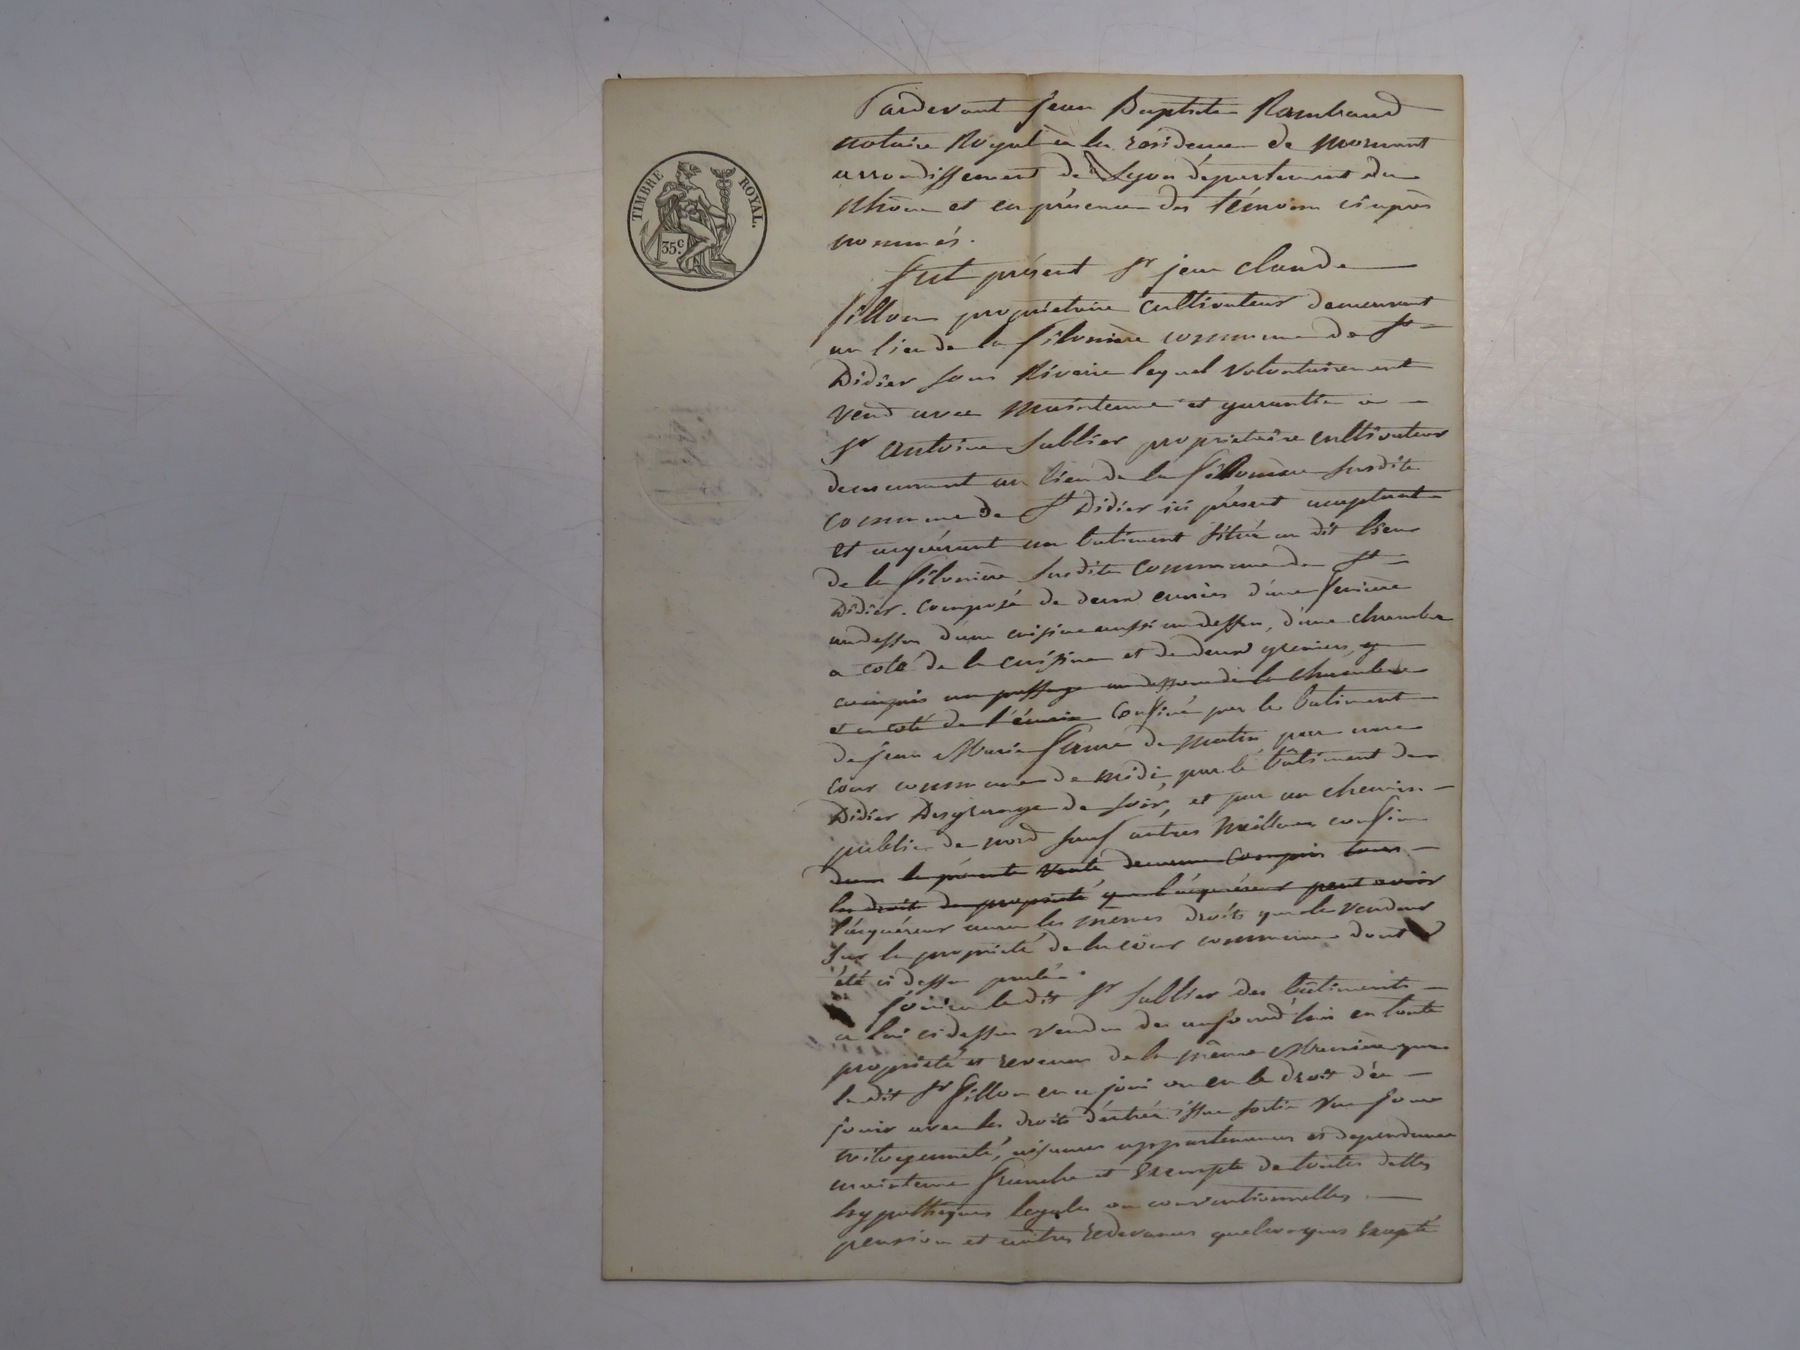 TIMBRE ROYAL.
35c.
Pardevant Jean Baptiste Rambaud
notaire Royal à la résidence de Mornant
arrondissement de Lyon département du
Rhône et en présence des témoins ci après
nommés.
fut présent Sr jean claude
fillon propriétaire cultivateur demeurant
au lieu de la filonière commune de St
Didier sous Riverie lequel volontairement
vend avec maintenue et garantie a
Sr antoine Sublier propriétaire cultivateur
demeurant au lieu de la filonière susdite
commune de St Didier ici présent acceptant
et acquérant un batiment situé au dit lieu
de la filonière susdite commune de St
Didier. composé de deux écuries d'une fenière
au dessus d'une cuisine aussi au dessus, d'une chambre
a coté de la cuisine et de deux greniers, y
compris un passage au dessous de la chambre
et a coté de l'écurie Confiné par le batiment
de jean Marie de matin par une
cour commune de midi, par le bâtiment de
Didier Desgrange de soir, et par un chemin
public de nord sauf autres meilleurs confins
dans la présente vente demeure compris tous
les droits de propriété que l'acquéreur peut avoir
l'acquéreur aura les mêmes droits que le vendeur
Sur la propriété de la cour commune dont
été ci dessus parlé.
Jouira le dit Sr Sublier des bâtiments
a lui ci dessus vendu des aujourd'hui en toute
propriété et revenus de la même Manière que
le dit Sr fillon en a joui ou eu le droit d'en
jouir avec les droits d'entrée issue sortie
mitoyenneté, aisances appartenances et dépendances
maintenue franche et Exempte de toutes dettes
hypothèques légales ou conventionnelles
pension et autres redevances quelconques Excepté